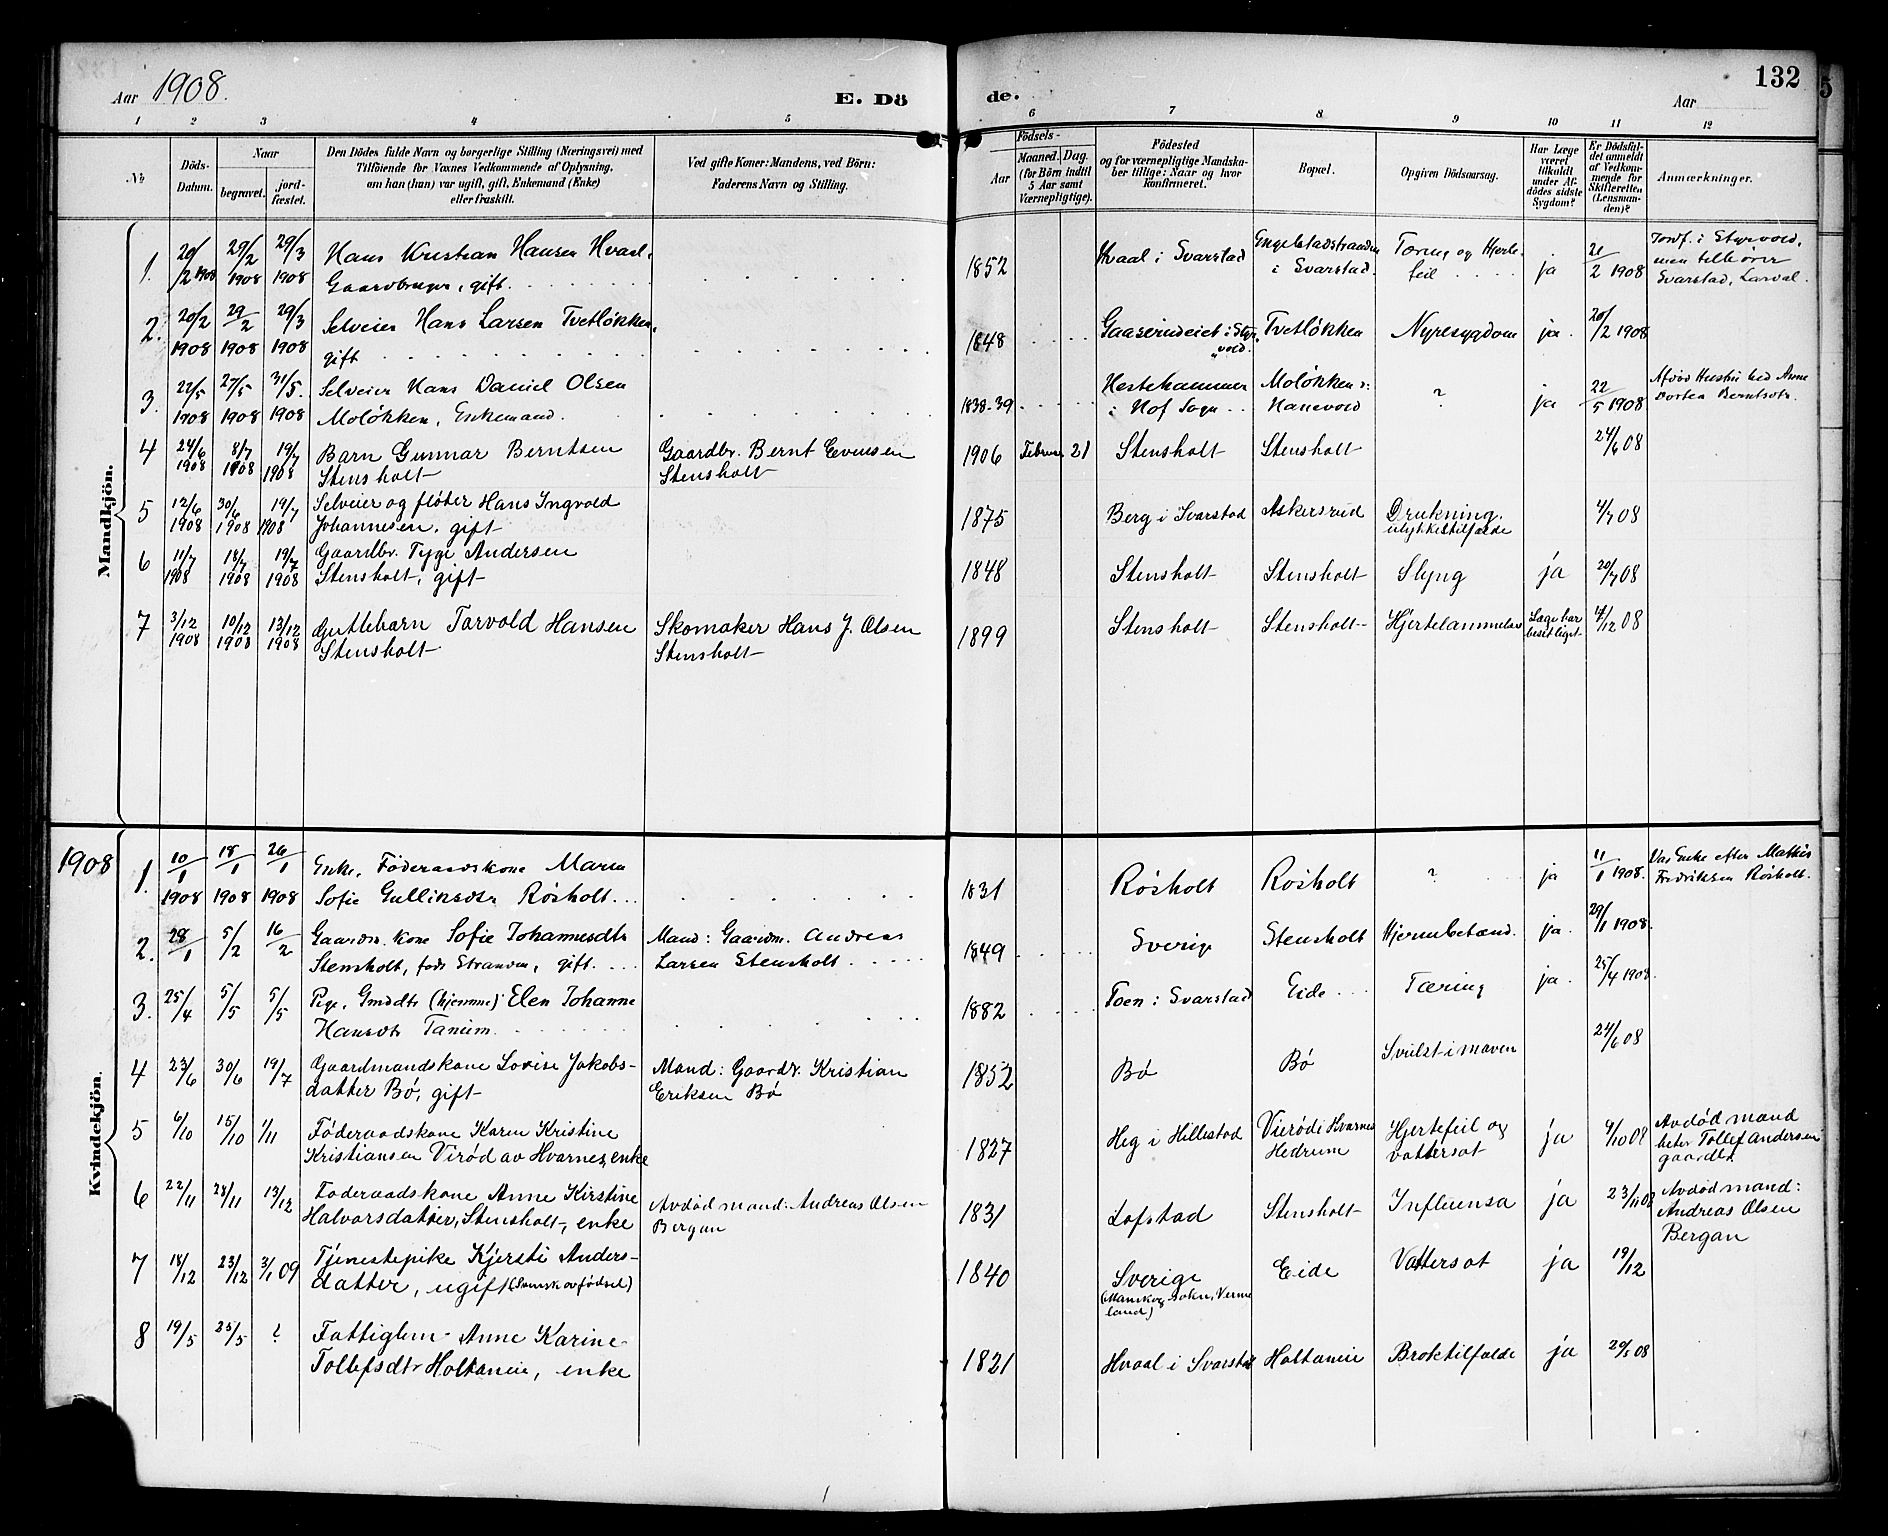 Aar 1908.
E. Dö
de.
Aar
132
5
1 2 3 4 5
6 7 8 9 10 11 12
№
Döds-
Datum.
Naar
begravet.
jord-
fæstet.
Den Dödes fulde Navn og borgerlige Stilling (Næringsvei) med
Tilföiende for Voxnes Vedkommende af Oplysning,
om han (hun) var ugift, gift, Enkemand (Enke)
eller fraskilt.
Ved gifte Koner: Mandens, ved Börn:
Faderens Navn og Stilling.
Födsels-
Aar
Maaned. Dag.
(for Börn indtil
5 Aar samt
Værnepligtige).
Födested
og for værnepligtige Mandska-
ber tillige: Naar og hvor
konfirmeret.
Bopæl.
Opgiven Dödsaarsag.
Har Læge
været
tilkaldt
under Af-
dödes sidste
Sygdom?
Er Dödsfal-
det anmeldt
af Vedkom-
mende for
Skifteretten
(Lensman-
den)?
Anmærkninger.
Mandkjön.
1. 20/2 1908 29/2 1908 29/3 1908 Hans Kristian Hansen Hvaal,
Gaardbruger, gift.
1852 Hvaal i Svarstad Engelstadstranden
i Svarstad. Tæring og Hjerte-
feil ja 21/2 1908 Jordf. i Styrvold,
men tilhører
Svarstad, Larval.
2. 20/2 1908 29/2 1908 29/3 1908 Selveier Hans Larsen Tvetløkken,
gift
1848 Gaaserudeiet i Styr-
vold. Tvetløkken Nyresygdom ja. 20/2 1908
3. 22/5 1908 27/5 1908 31/5. 1908 Selveier Hans Daniel Olsen
Moløkken, Enkemand.
1838-39 Hestehammer
i Hof Sogn Moløkken v:
Hanevold ? ja 22/5 1908 Afdød Hustru hed Anne
Dortea Berntsdtr.
4 24/6 1908 8/7 1908 19/7 1908 Barn Gunnar Berntsen
Stensholt
Gaardbr. Bernt Evensen
Stensholt
1906 Februar 21 Stensholt Stensholt 24/6 08
5 12/6 1908 30/6 1908 19/7 1908 Selveier og fløter Hans Ingvold
Johannesen, gift
1875 Berg i Svarstad Askersrud Drukning.
ulykkestilfælde 4/7 08
6 11/7 1908 18/7 1908 19/7 1908 Gaardbr. Tyge Andersen
Stensholt, gift
1848 Stensholt Stensholt Slyng ja 20/7 08
7 3/12 1908 10/12 1908 13/12 1908 Guttebarn Torvold Hansen
Stensholt
Skomaker Hans J. Olsen
Stensholt
1899 Stensholt Stensholt Hjertelammelse Læge har
beset liget 4/12 08
1908
Kvindekjön.
1. 10/1 1908 18/1 1908 26/1 1908 Enke, Føderaadskone Maren
Sofie Gulliksdtr Røsholt.
1831 Røsholt Røsholt ? ja 11/1 1908. Var Enke efter Mathis
Fredriksen Røsholt.
2. 28/1 5/2 16/2 Gaardm. kone Sofie Johannesdtr
Stensholt, født Stranden, gift.
Mand: Gaardm. Andreas
Larsen Stensholt
1849 Sverige Stensholt Hjernebetænd. ja. 29/1 1908.
3. 25/4 5/5 5/5 Pige, Gmddtr (hjemme) Elen Johanne
Hansdtr Tanum.
1882 Toen i Svarstad Eide Tæring ja. 25/4 1908.
4 23/6 30/6 19/7 Gaardmandskone Lovise Jakobs-
datter Bø, gift
Mand: Gaardbr. Kristian
Eriksen Bø
1852 Bø Bø Svulst i maven 24/6 08
5 6/10 15/10 1/11 Føderaadskone Karen Kristine
Kristiansen Virød av Hvarnes, enke
1827 Heg i Hillestad Vierød i Hvarnes
Hedrum Hjertefeil og
vattersot ja 9/10 08 Avdød mand
heter Tollef Andersen
gaardbr
6 22/11 28/11 13/12 Føderaadskone Anne Kirstine
Halvorsdatter, Stensholt, enke
Avdød mand: Andreas Olsen
Bergan
1831 Lofstad Stensholt Influensa ja 23/11 08 Avdød mand:
Andreas Olsen
Bergan
7 18/12 23/12 3/1 09 Tjenestepike Kjersti Anders-
datter, ugift (svensk av fødsel)
1840 Sverige
land) Eide Vattersot ja 19/12
8 19/5 25/5 ? Fattiglem Anne Karine
Tollefsdtr Holtaneie, enke
1821 Hvaal i Svarstad Holtaneie Broktilfælde ja 20/5 08